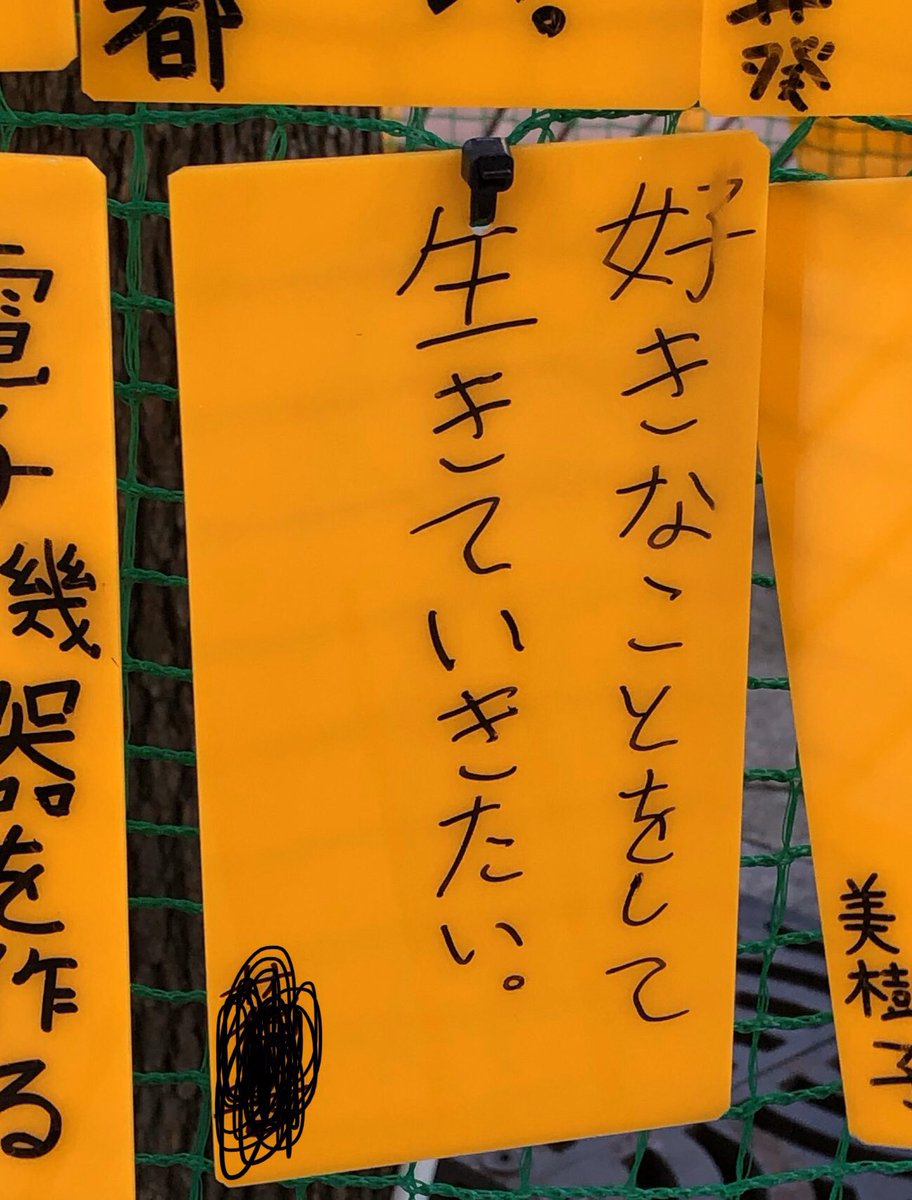 好きなことをして
生きていきたい。
都
葵
電子機器を作る
美樹子